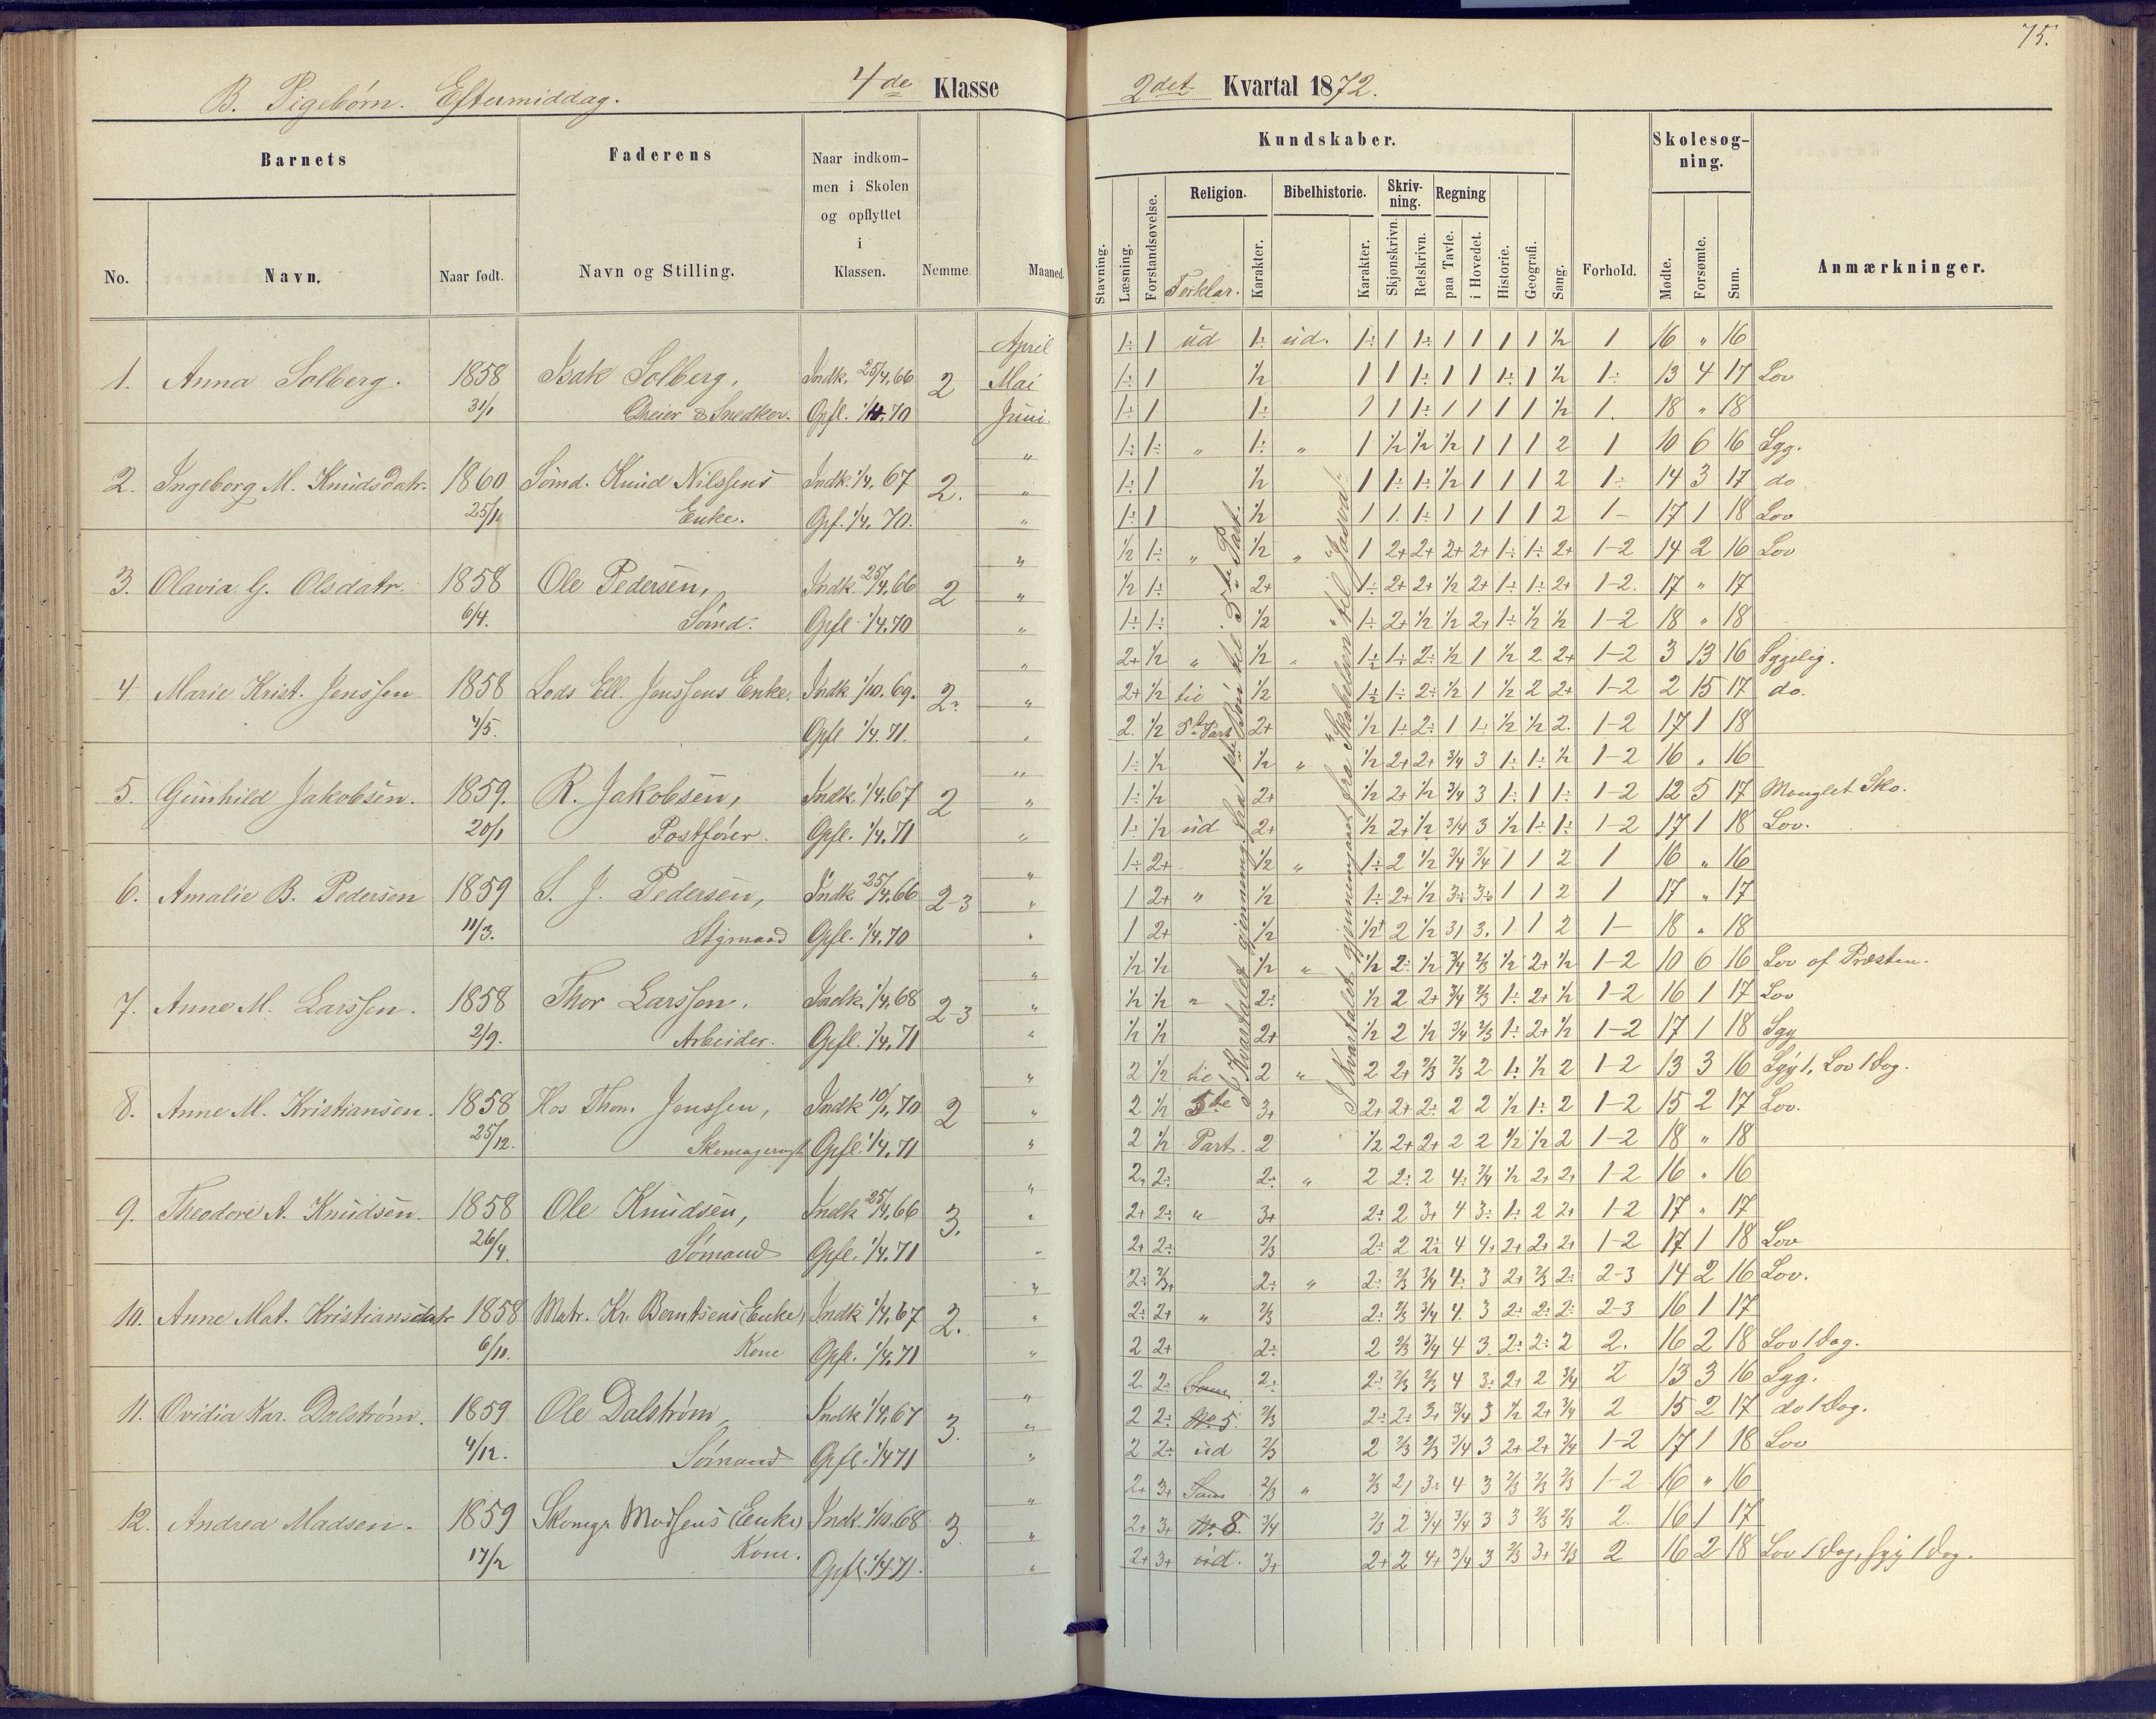 75.
B. Pigebörn. Eftermiddag. 4de Klasse 2det Kvartal 1872.
Barnets Faderens Naar indkommen i Skolen og opflyttet i Klassen. Nemme. Maaned. Kundskaber. Forhold. Skolesøgning. Anmærkninger.
No. Navn. Naar født. Navn og Stilling.
Stavning. Læsning. Forstandsøvelse. Religion. Forklar. Karakter. Bibelhistorie. Karakter. Skrivning. Skjønskrivn. Retskrivn. Regning paa Tavle. i Hovedet. Historie. Geografi. Sang. Mødte. Forsømte. Sum.
April 1÷ 1 ud 1÷ ud. 1÷ 1 1÷ 1 1 1 1 ½ 1 16 „ 16
1. Anna Solberg. 1858 Isak Solberg, Indk. 25/4.66 2 Mai 1÷ 1 ½ 1 1 1÷ 1 1 1÷ 1 ½ 1÷ 13 4 17 Lov
31/1 Dreier & Snedker. Opfl. 1/4.70 Juni 1÷ 1 1÷ 1 1 1÷ 1 1 1 1 ½ 1. 18 „ 18
„ 1÷ 1÷ „ 1÷ „ 1 ½ ½ ½ 1 1 1 2 1 10 6 16 Syg.
2. Ingeborg M. Knudsdatr. 1860 Sömd. Knud Nilssens Indk. 1/4.67 2. „ 1÷ 1 ½ 1 1÷ 1÷ ½ 1 1 1 2 1÷ 14 3 17 do
Enke. Opf. 1/4.70. „ 1÷ 1 ½ 1 1. 1÷ 1 1 1 1 2 1- 17 1 18 Lov
„ ½ 1÷ „ ½ „ 1 2+ 2+ 2+ 2+ 1÷ 1÷ 2+ 1-2 14 2 16 Lov
3. Olavia G. Olsdatr. 1858 Ole Pedersen, Indk. 25/4.66 2 „ ½ 1÷ 2+ 1÷ 2+ 2+ ½ 2+ 1÷ 1÷ 2+ 1-2. 17 „ 17
6/4. Sömd. Opfl. 1/4.70 „ 1÷ 1÷ ½ 1÷ 2+ ½ ½ 2+ 1÷ ½ ½ 1-2 18 „ 18
„ 2+ ½ „ ½ „ 1÷ 2÷ ½ 1 ½ 2 2+ 1-2 3 13 16 Sygelig.
4. Marie Krist. Jenssen 1858 Lods Ell. Jenssens Enke. Indk 1/10.69. 2÷ „ 2+ ½ til ½ 1÷ 2÷ ½ 1 ½ 2 2+ 1-2 2 15 17 do.
4/5. Opfl 1/4.71. „ 2. ½ 5te Part 2+ ½ 1÷ 2÷ 1 1÷ ½ ½ 2. 1-2 17 1 18
„ 1÷ ½ ½ „ ½ 2+ 2+ ¾ 3 1÷ 1÷ ½ 1-2 16 „ 16
5. Gunhild Jakobsen. 1859. R. Jakobsen, Indk. 1/4.67 2 „ 1÷ ½ 2+ ½ 2+ ½ ¾ 3 1÷ 1 1÷ 1-2 12 5 17 Manglet Sko.
20/1 Postförer. Opfl. 1/4.71 „ 1÷ ½ ud 2+ ½ 2+ ½ ¾ 3 ½ 1÷ 1÷ 1-2 17 1 18 Lov.
„ 1÷ 2+ ½ „ 1÷ 2 ½ ¾ ¾ 1 1 2 1 16 „ 16
6. Amalie B. Pedersen 1859 S. J. Pedersen, Indk 25/4.66 2-3 „ 1 2+ „ ½ 1÷ 2+ ½ 3÷ 3÷ 1 1 2 1 17 „ 17
11/3. Stymand Opfl. 1/4.70 „ 1 2+ ½ 2 ½ 3. 1 1 2 1- 18 „ 18
„ ½ ½ ½ „ ½ 2÷ ½ ¾ ⅔ ½ 2+ ½ 1-2 10 6 16 Lov af Præsten.
7. Anne M. Larssen. 1858 Thor Larssen. Indk. 1/4.68 2-3 „ ½ ½ „ 2÷ ½ 2 2+ ¾ ⅔ 1÷ 2+ ½ 1-2 16 1 17 Lov
2/9. Arbeider. Opfl. 1/4.71 „ ½ ½ 2+ ½ 2 ½ ¾ ⅔ 1÷ 2+ ½ 1-2 17 1 18 Syg
„ 2 ½ til 2 „ 2 2+ ⅔ ⅔ 2 1÷ ½ 2 1-2 13 3 16 Syg 1, Lov 1 Dag.
8. Anne M. Kristiansen. 1858 Hos Thom Jenssen, Indk 10/1.70 2 „ 2 ½ 5te 3+ 2+ 2+ 2÷ 2 2 ½ 1÷ 2 1-2 15 2 17 Lov.
25/12. Opfl. 1/4.71 „ 2 ½ Part. 2 ½ 2+ 2+ 2 2 ½ ½ 2 1-2 18 „ 18
„ 2÷ 2÷ 2÷ „ 2 2÷ 2 4÷ ¾ ½ 2+ 2+ 1-2 16 „ 16
9. Theodore A. Knudsen. 1858 Ole Knudsen, Indk 25/4.66 3. „ 2+ 2÷ „ 3+ 2÷ 2 3+ 4 3÷ 1÷ 2 2+ 1-2 17 „ 17
26/4. Sömand Opfl. 1/4.71 „ 2+ 2÷ ⅔ 2÷ 2 2÷ 4 4+ 2+ 2+ 2+ 1-2 17 1 18 Lov
„ 2÷ ⅔+ 2÷ „ 2÷ ⅔ ¾ 4÷ 3 2+ ⅔ 2÷ 2-3 14 2 16 Lov.
10. Anne Mat. Kristiansdatr 1858 Matr. Kr. Berntsens (Enke) Indk 1/4.67 2. „ 2÷ 2+ „ ⅔ 2÷ ⅔ ¾ 4. 3 2÷ 2÷ 2÷ 2-3 16 1 17
6/11. Kone Opfl. 1/4.71 „ 2 2+ 2÷ 2 ⅔ ¾ 4 3. 2÷ 2÷ 2 2. 16 2 18 Lov 1 Dag.
„ 2 2÷ 2÷ 2÷ ⅔ ⅔ 4 3÷ 2+ 2 ¾ 2 13 3 16 Syg.
11. Ovidia Kar. Dalström. 1859 Ole Dalström, Indk 1/4.67 3. „ 2 2÷ No. 5. ⅔ 2÷ 2÷ 3+ ¾ 3 ½ 2+ ¾ 2 15 2 17 do 1 Dag.
4/12. Sömand Opfl. 1/4 71 „ 2 2÷ ud ⅔ 2 ⅔ ⅔ ¾ 3 2+ 2+ ¾ 1-2 17 1 18 Lov
„ 2+ 3+ ⅔ „ ⅔ 3÷ 4 3 ⅔ ⅔ ⅔ 1-2 16 „ 16
12. Andrea Madsen. 1859 Skomgr Madsens (Enke) Indk. 1/10.68. 3. „ 2+ 3+ No. 8. ¾ ⅔ 2 ¾ ¾ 3 3 ⅔ ⅔ 2. 16 1 17
17/2 Kone. Opfl. 1/4.71. „ 2+ 3+ ud. 3+ 2+ 2 4+ ¾ 3 ⅔ 3+ ⅔ 2 16 2 18 Lov 1 Dag, syg 1 Dag.
I Kvartalet gjennemg. fra Bön til 5te Part.
I Kvartalet gjennemgaaet fra "Skabelsen" til "Josva".